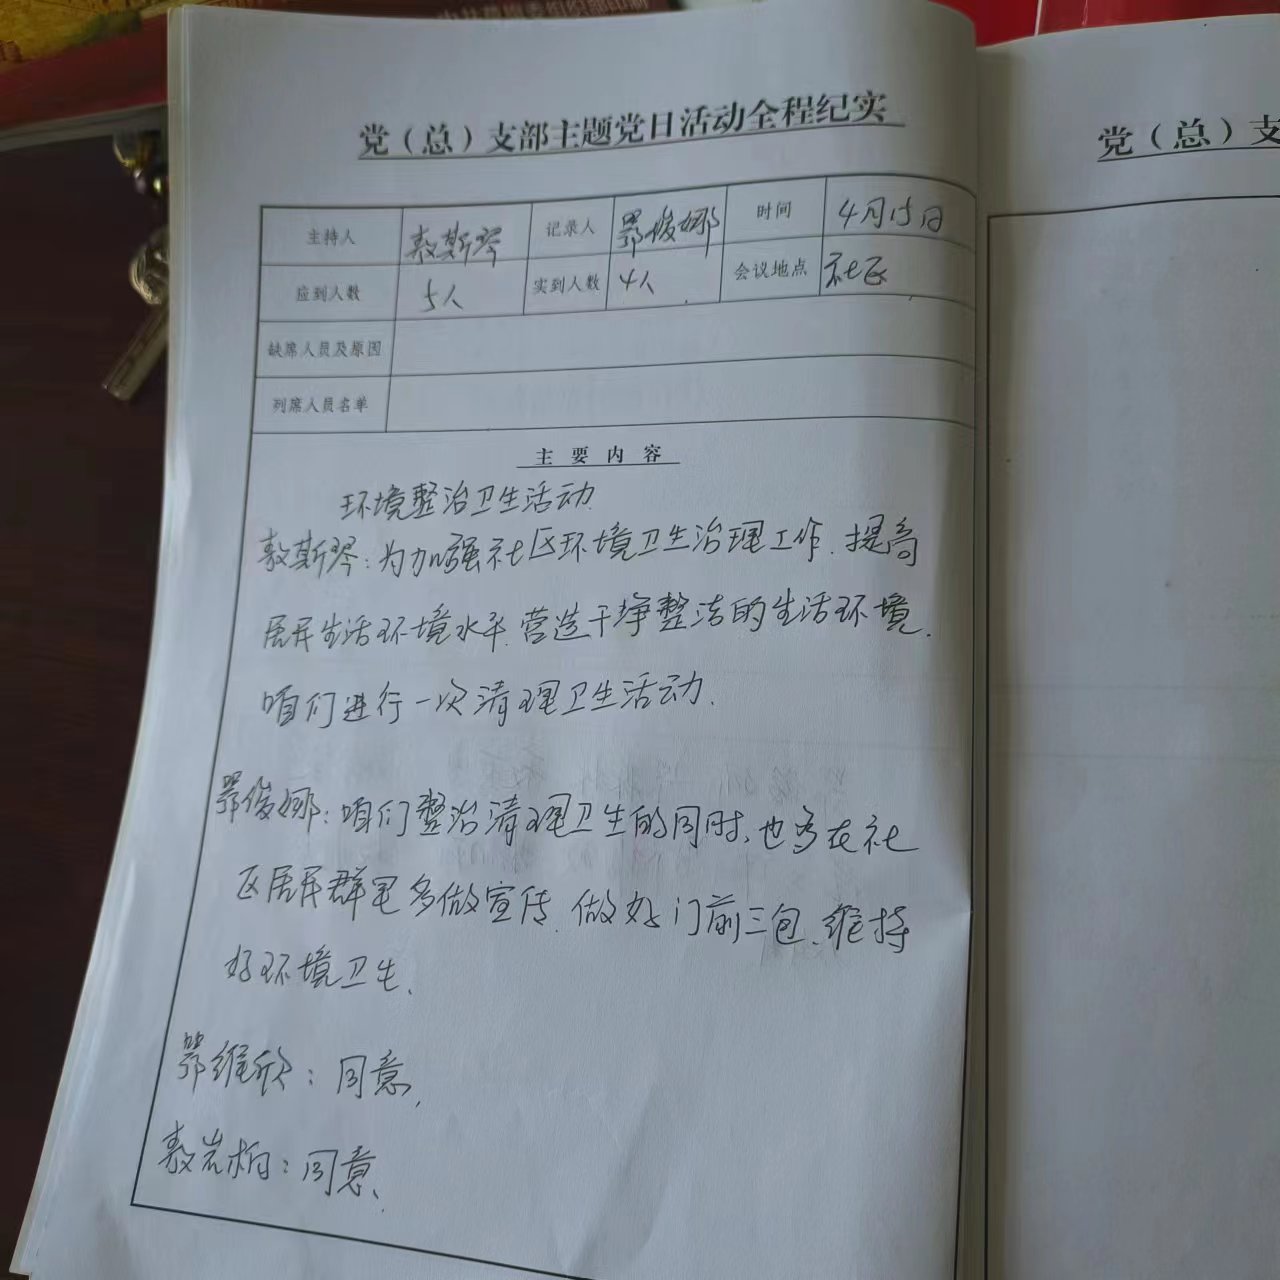 党（总）支部主题党日活动全程纪实
主持人 敖斯琴 记录人 鄂俊娜 时间 4月15日
应到人数 5人 实到人数 4人 会议地点 社区
缺席人员及原因
列席人员名单
主要内容
环境整治卫生活动
敖斯琴：为加强社区环境卫生治理工作、提高
居民生活环境水平、营造干净整洁的生活环境、
咱们进行一次清理卫生活动、
鄂俊娜：咱们整治清理卫生的同时、也多在社
区居民群里多做宣传、做好门前三包、维持
好环境卫生、
鄂维欣：同意、
敖岩柏：同意、
党（总）支